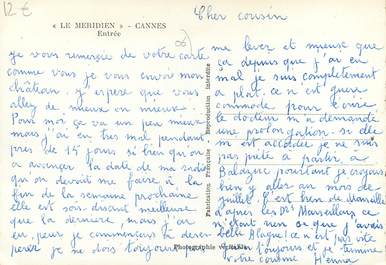 12 €
« LE MERIDIEN » - CANNES
Entrée
Cher cousin
je vous remercie de votre carte
comme vous je vous envoi mon
château. j'espère que vous
alley de mieux en mieux.
Pour moi ça va un peu mieux
mais j'ai eu très mal pendant
près de 15 jours si bien qu'on
a avancer la date de ma
qu'on devait me faire à la
fin de la semaine prochaine
elle est soi-disant meilleure
que la dernière, mais j'ai
eu peur je commençais à déses-
pérer je ne dois toujours
me lever et
ça depuis que j'ai eu
mal je suis complètement
à plat. ce n'est guère
commode pour écrire
le docteur m'a demandé
une prolongation. si elle
m'est accordée je ne suis
pas prête à partir à
Balazuc pourtant je croyais
bien y aller au mois de
juillet. C'est bien de Marseille
d'après les Drs Marseillais ce
n'était rien se que j'avais
belle blague! ce n'est pas vite
toujours et je termine
votre cousine
Fabrication Française - Reproduction Interdite
Photographie véritable